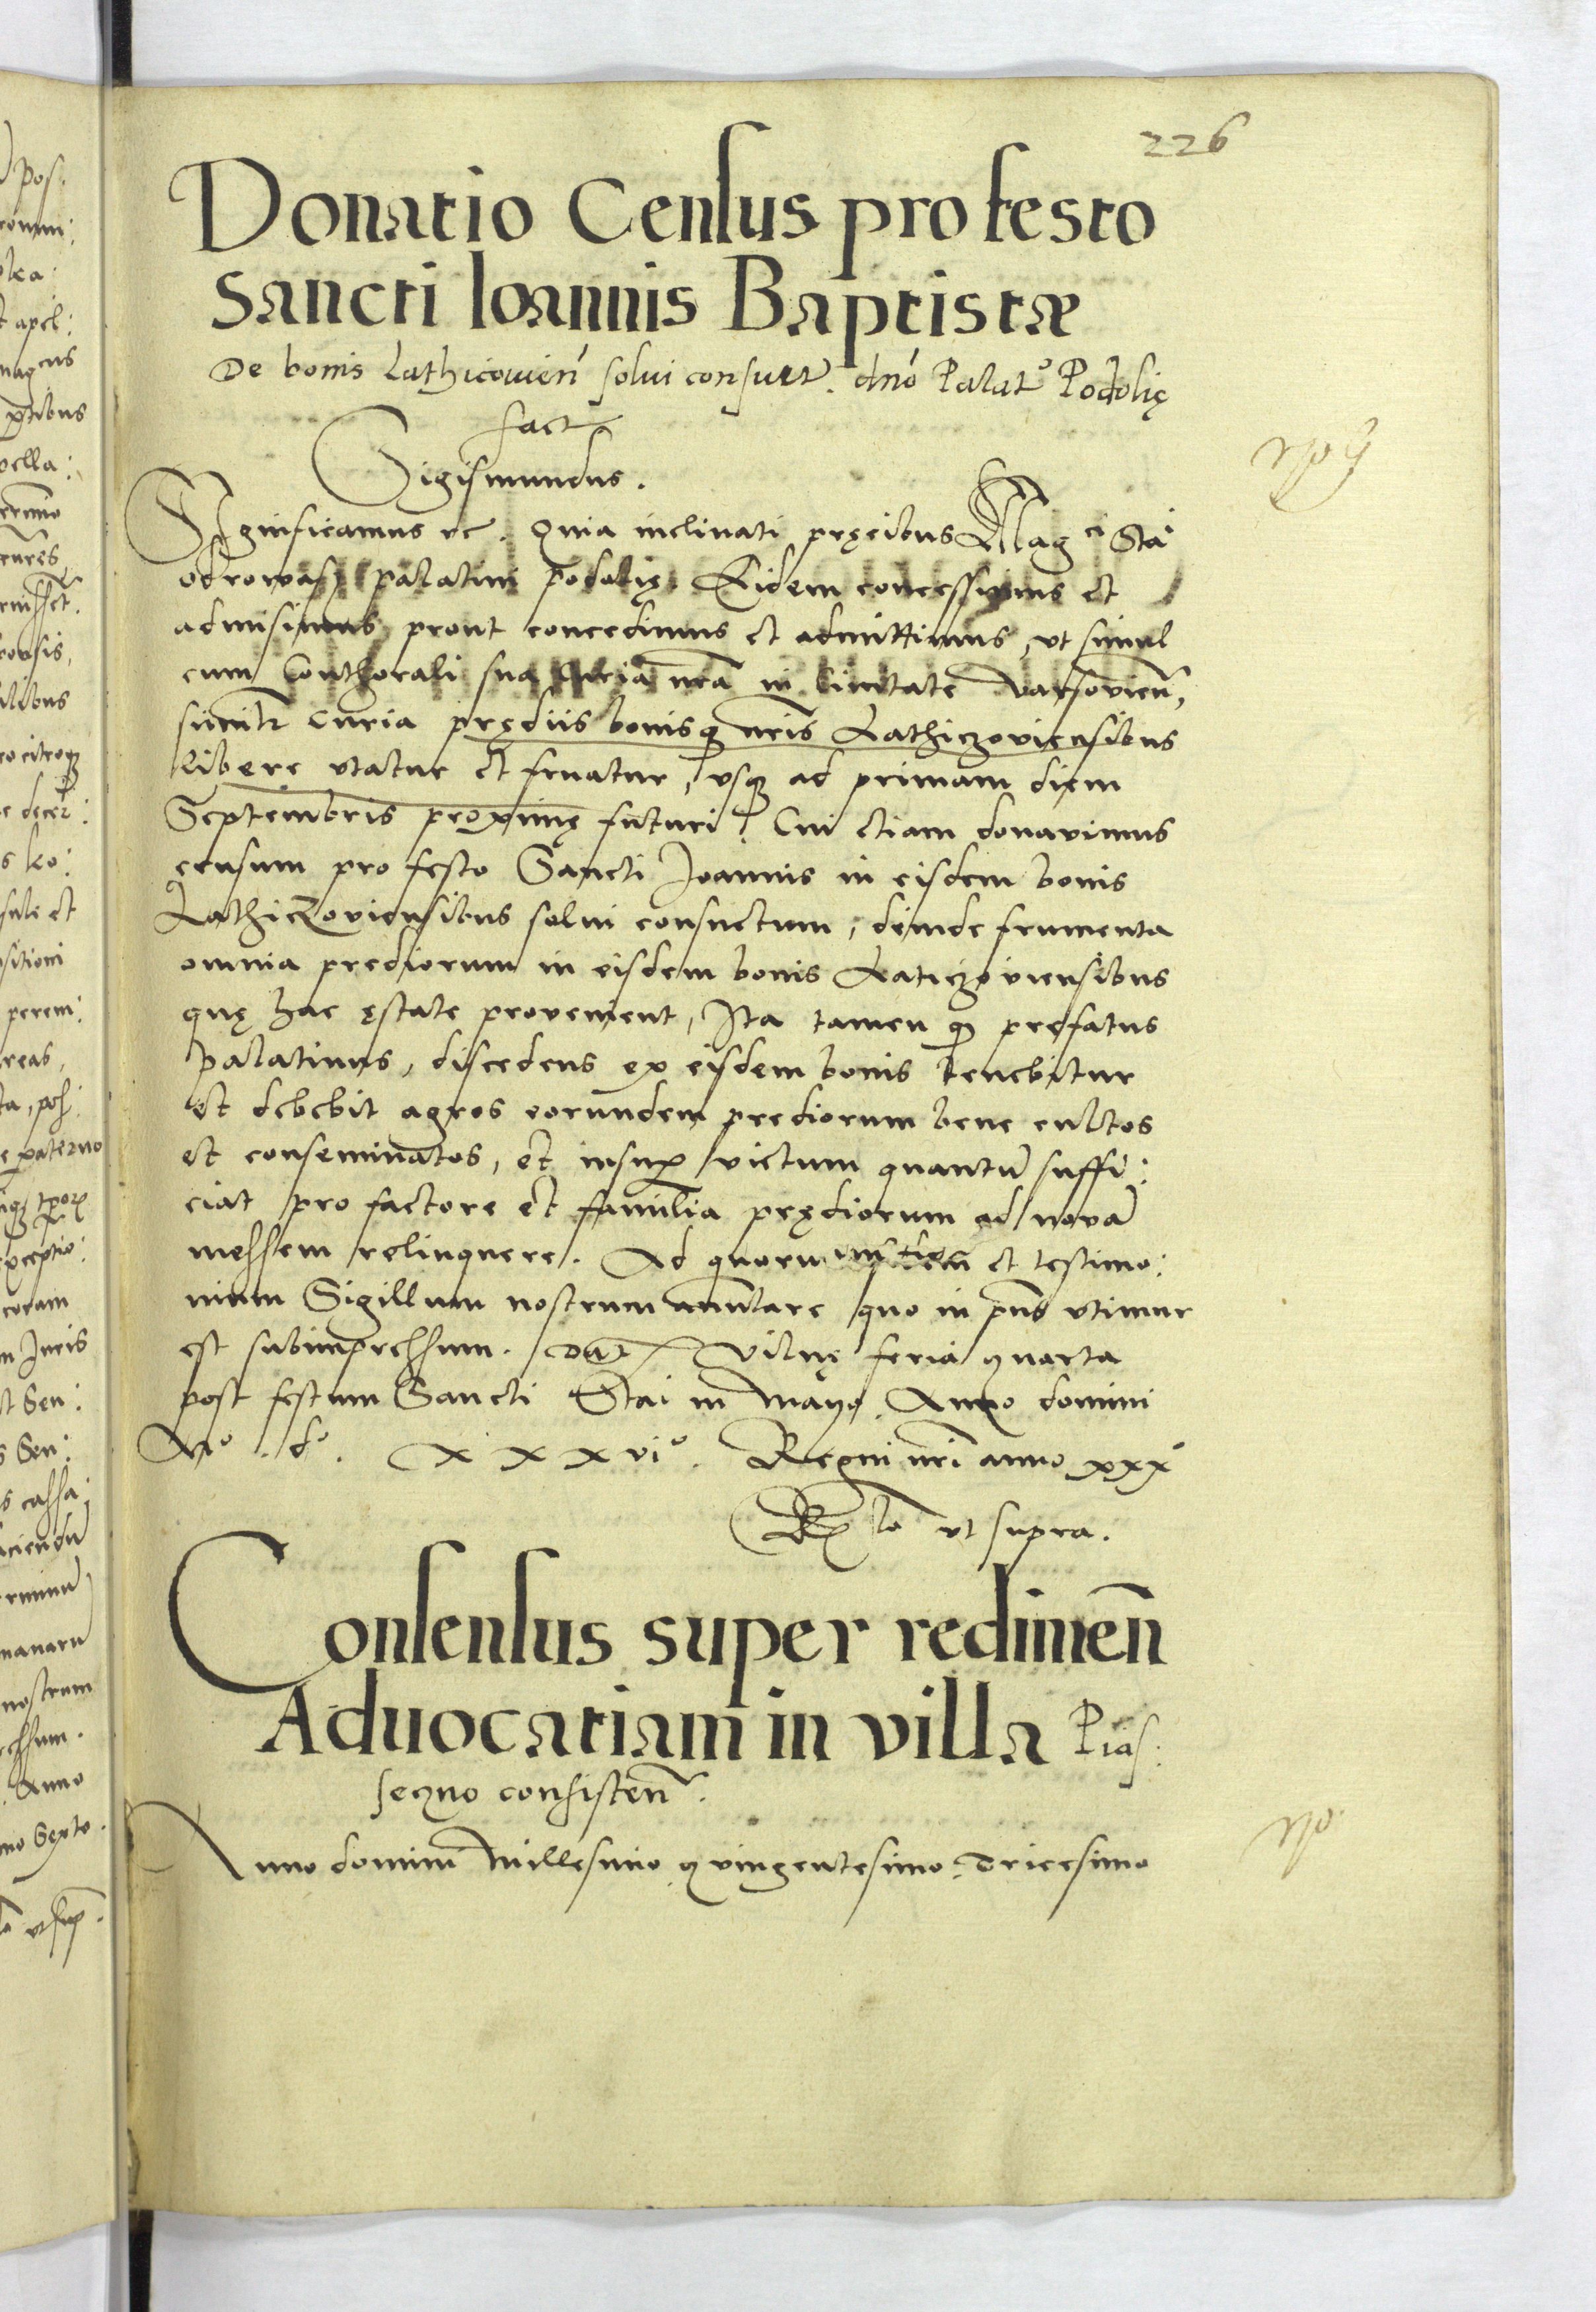 226
Donatio Census pro festo
Sancti Ioannis Baptistæ
De bonis Lathicovien̄ solui consuet. dn̄o Palat° Podolię
fact
Sigismundus.
Significamus etc. Quia inclinati pręcibus Mag^ci Stāi
odrowasz palatini podolię. Eidem concessimus et
admisimus prout concedimus et admittimus, vt simul
cum Conthorali sua Curia nr̄a in Ciuitate varsovien̄,
curia prędiis bonisq nr̄is Lathiczoviensibus
libere vtatur et fruatur, vsq ad primam diem
Septembris proximę futuri. Cui etiam donavimus
censum pro festo Sancti Joannis in eisdem bonis
Lathiczoviensibus solui consuetum, deinde frumenta
omnia prediorum in eisdem bonis Laticzoviensibus
quę hac ęstate provenient, Ita tamen q prefatus
palatinus, discedens ex eisdem bonis tenebitur
et debebit agros eorundem prediorum bene cultos
et conseminatos, et insup victum quantū suffi:
ciat pro factore et familia prędiorum ad novā
messem relinquere. Ad quorum fidem et testimo:
nium Sigillum nostrum annulare quo in pn̄s vtimur
est subimpressum. Dat Vilnę feria quarta
post festum Sancti Stāi in Mayo. Anno domini
M°. d°. xxxvi°. Regni nr̄i anno xxx°
R̄ lō vt supra.
Consensus super redimen̄
Aduocatiam in villa Pias:
seczno consisten̄.
Anno domini Millesimo quingentesimo Tricesimo